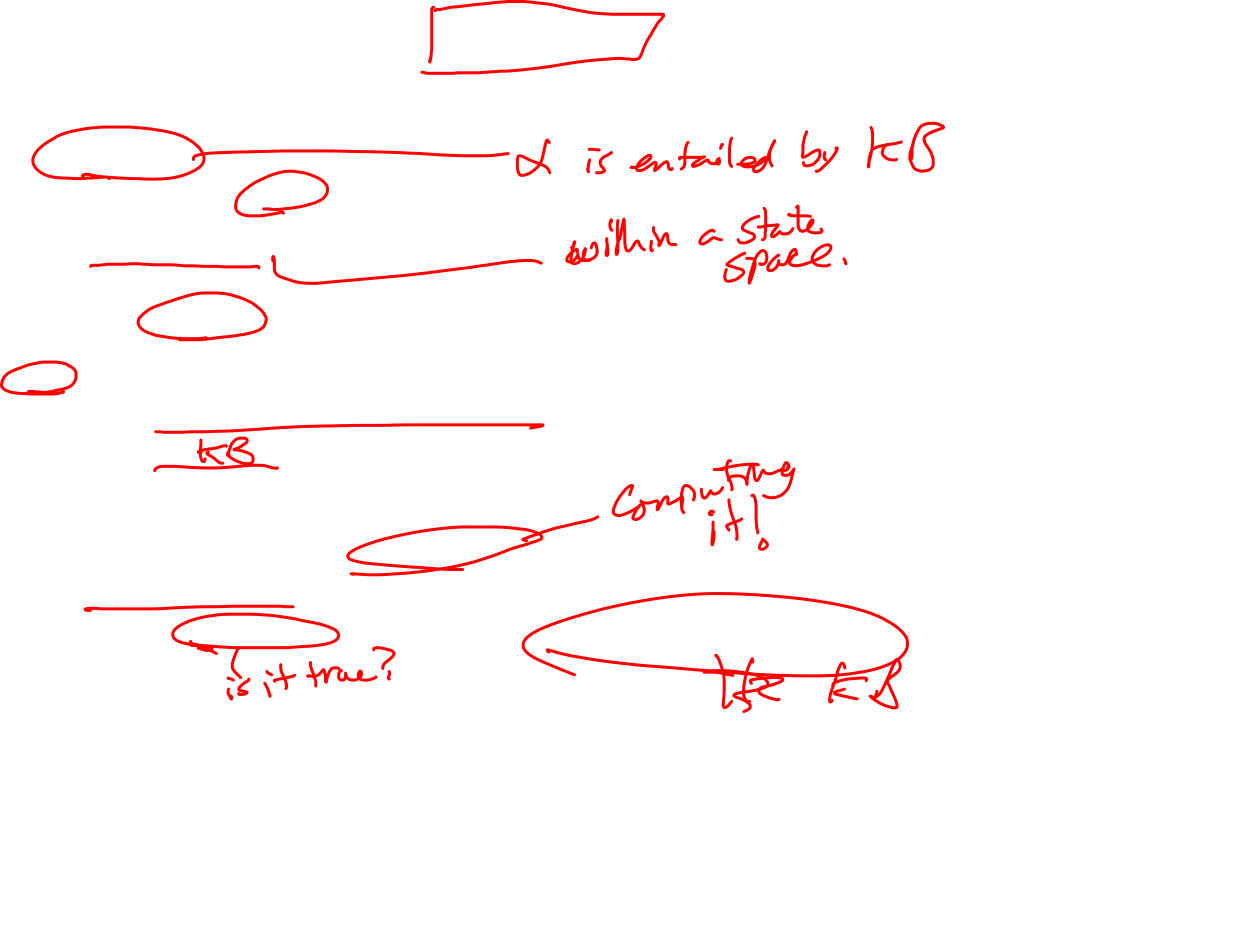 α is entailed by KB
within a state
space.
KB
Computing
it!
is it true?
KB